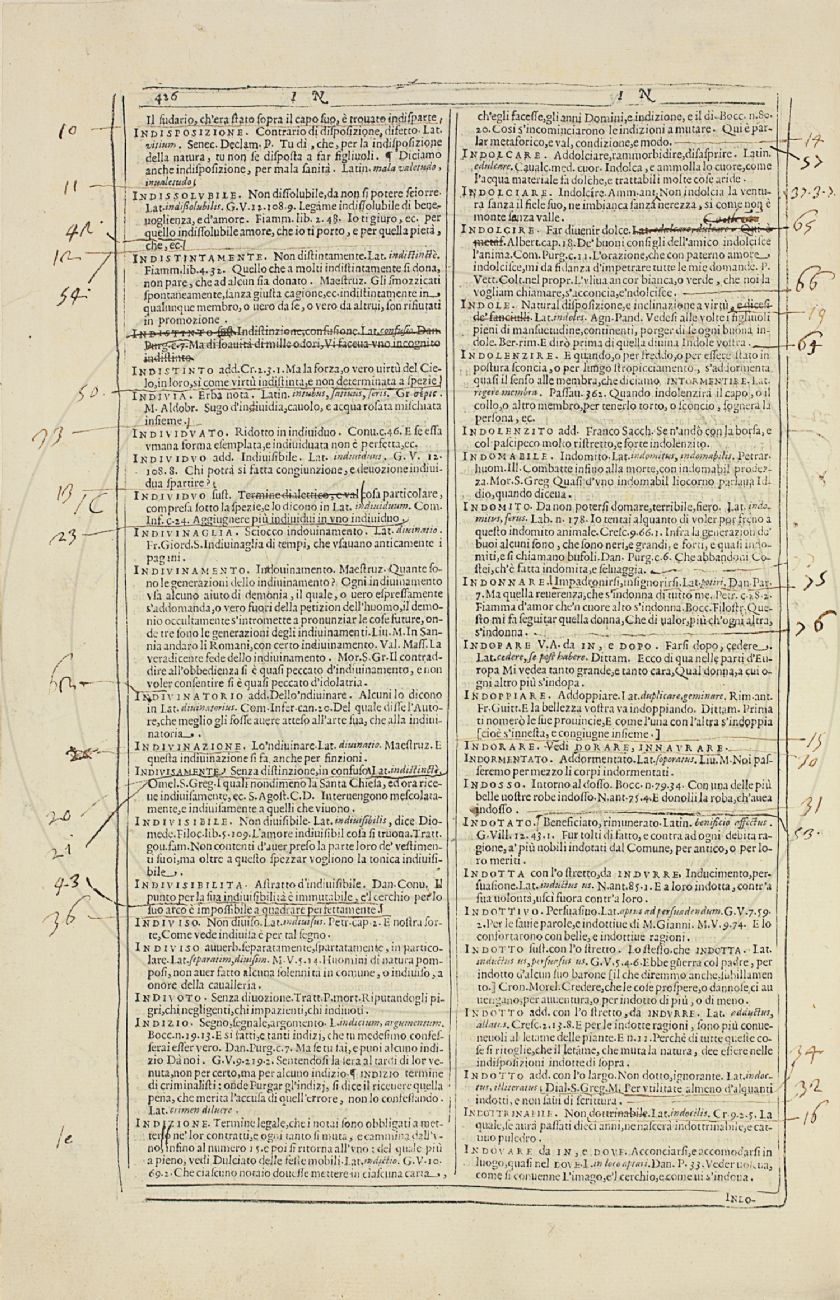 426 I N
Il sudario, ch'era stato sopra il capo suo, è trouato indisparte,
INDISPOSIZIONE. Contrario di disposizione, difetto. Lat.
vitium. Senec. Declam. P. Tu dì, che, per la indisposizione
della natura, tu non se disposta a far figliuoli. ¶ Diciamo
anche indisposizione, per mala sanità. Latin. mala valetudo,
inualetudo;
INDISSOLVBILE. Non dissolubile, da non si potere sciorre.
Lat. indissolubilis. G.V. 12. 108. 9. Legame indissolubile di bene-
uoglienza, ed'amore. Fiamm. lib. 2. 48. Io ti giuro, ec. per
quello indissolubile amore, che io ti porto, e per quella pietà,
che, ec.
INDISTINTAMENTE. Non distintamente. Lat. indistinctè.
Fiamm. lib. 4. 32. Quello che a molti indistintamente si dona,
non pare, che ad alcun sia donato. Maestruz. Gli smozzicati
spontaneamente, sanza giusta cagione, ec. indistintamente in
qualunque membro, o uero da se, o vero da altrui, son rifiutati
in promozione.
INDISTINTO sust. Indistinzione, confusione. Lat. confusio. Dan.
Purg. c. 7. Ma di soauità di mille odori, Vi faceua vno incognito
indistinto.
INDISTINTO add. Cr. 2. 3. 1. Ma la forza, o vero virtù del Cie-
lo, in loro, sì come virtù indistinta, e non determinata a spezie
INDIVIA. Erba nota. Latin. intubus, satiuus, seris. Gr.
M. Aldobr. Sugo d'indiuidia, cauolo, e acqua rosata mischiata
insieme.
INDIVIDVATO. Ridotto in indiuiduo. Conu. c. 46. E se essa
vmana forma esemplata, e indiuiduata non è perfetta, ec.
INDIVIDVO add. Indiuisibile. Lat. indiuiduus, G. V. 12.
108. 8. Chi potrà sì fatta congiunzione, e deuozione indiui-
dua spartire?
INDIVIDVO sust. Termine dialettico, e val cosa particolare,
compresa sotto la spezie, e lo dicono in Lat. indiuiduum. Com.
Inf. c. 24. Aggiugnere più indiuidui in vno indiuiduo.
INDIVINAGLIA. Sciocco indouinamento. Lat. diuinatio.
Fr. Giord. S. Indiuinaglia di tempi, che vsauano anticamente i
pagini.
INDIVINAMENTO. Indouinamento. Maestruz. Quante so-
no le generazioni dello indiuinamento? Ogni indiuinamento
vsa alcuno aiuto di demònia, il quale, o uero espressamente
s'addomanda, o vero fuori della petizion dell'huomo, il demo-
nio occultamente s'intromette a pronunziar le cose future, on-
de tre sono le generazioni degli indiuinamenti. Liu. M. In San-
nia andaro li Romani, con certo indiuinamento. Val. Mass. La
veradicente fede dello indiuinamento. Mor. S. Gr. Il contrad-
dire all'obbedienza sì è quasi peccato d'indiuinamento, e non
voler consentire sì è quasi peccato d'idolatria.
INDIVINATORIO add. Dello'ndiuinare. Alcuni lo dicono
in Lat. diuinatorius. Com. Infer. can. 20. Del quale disse l'Auto-
re, che meglio gli fosse auere atteso all'arte sua, che alla indiui-
natoria.
INDIVINAZIONE. Lo'ndiuinare. Lat. diuinatio. Maestruz. E
questa indiuinazione si fa anche per finzioni.
INDIVISAMENTE. Senza distinzione, in confuso. Lat. indistinctè.
Omel. S. Greg. I quali nondimeno la Santa Chiesa, ed ora rice-
ue indiuisamente, ec. S. Agost. C. D. Interuengono mescolata-
mente, e indiuisamente a quelli che viuono.
INDIVISIBILE. Non diuisibile. Lat. indiuisibilis, dice Dio-
mede. Filoc. lib. 5. 109. L'amore indiuisibil cosa si truoua. Tratt.
gou. fam. Non contenti d'auer preso la parte loro de' vestimen-
ti suoi, ma oltre a questo spezzar vogliono la tonica indiuisi-
bile.
INDIVISIBILITÀ. Astratto d'indiuisibile. Dan. Conu. Il
punto per la sua indiuisibilità è immutabile, e'l cerchio per lo
suo arco è impossibile a quadrare perfettamente.
INDIVISO. Non diuiso. Lat. indiuisus. Petr. cap. 2. E nostra sor-
te, Come vede indiuisa è per tal segno.
INDIVISO auuerb. separatamente, spartatamente, in partico-
lare. Lat. separatim, diuisim. M. V. 5. 14. Huomini di natura pom-
posi, non auer fatto alcuna solennità in comune, o indiuiso, a
onore della caualleria.
INDIVOTO. Senza diuozione. Tratt. P. mort. Riputandogli pi-
gri, chi negligenti, chi impazienti, chi indiuoti.
INDIZIO. Segno, segnale, argomento. L. indicium, argumentum.
Bocc. n. 19. 13. E sì fatti, e tanti indizj, che tu medesimo confes-
serai esser vero. Dan. Purg. c. 7. Ma se tu sai, e puoi alcuno indi-
zio Dà noi. G. V. 9. 219. 2. Sentendosi la sera al tardi di lor ve-
nuta, non per certo, ma per alcuno indizio. ¶ INDIZIO termine
di criminalisti: onde Purgar gl'indizj, si dice il riceuere quella
pena, che merita l'accusa di quell'errore, non lo confessando.
Lat. crimen diluere.
INDIZIONE. Termine legale, che i notai sono obbligati a met-
tersi ne' lor contratti, e ogni tanto si muta, e cammina dall'v-
no, infino al numero 15. e poi si ritorna all'vno: del quale più
a pieno, vedi Dulciato delle feste mobili. Lat. indictio. G. V. 10.
69. 2. Che ciascuno notaio douesse mettere in ciascuna carta,
10
11
42
12
54
50
33
13
23
20
21
43
36
1e
I N
ch'egli facesse, gli anni Domini, e indizione, e il dì. Bocc. n. 80.
20. Così s'incominciarono le indizioni a mutare. Qui è par-
lar metaforico, e val, condizione, e modo.
INDOLCARE. Addolciare, rammorbidire, disasprire. Latin.
edulcare. Caualc. med. cuor. Indolca, e ammolla lo cuore, come
l'acqua materiale fa dolche, e trattabili molte cose aride.
INDOLCIARE. Indolcire. Amm. ant. Non indolcia la ventu-
ra sanza il fiele suo, ne imbianca sanza nerezza, sì come non è
monte sanza valle.
INDOLCIRE. Far diuenir dolce. Lat. dulcare, dulcare. Qui è
metaf. Albert. cap. 18. De' buoni consigli dell'amico indolcisce
l'anima. Com. Purg. c. 11. L'orazione, che con paterno amore
indolcisce, mi da fidanza d'impetrare tutte le mie domande. P.
Vett. Colt. nel propr. L'vliua ancor bianca, o verde, che noi la
vogliam chiamare, s'acconcia, e'ndolcisce.
INDOLE. Natural disposizione, e inclinazione a virtù, e dicesi
de' fanciulli. Lat. indoles. Agn. Pand. Vedesi alle volte i figliuoli
pieni di mansuetudine, continenti, porger di se ogni buona in-
dole. Ber. rim. E dirò prima quella diuina Indole vostra.
INDOLENZIRE. E quando, o per freddo, o per essere stato in
postura sconcia, o per lungo stropicciamento, s'addormenta
quasi il senso alle membra, che diciamo INTORMENTIRE. Lat.
rigere membra. Passau. 362. Quando indolenzirà il capo, o il
collo, o altro membro, per tenerlo torto, o sconcio, sognerà la
persona, ec.
INDOLENZITO add. Franco Sacch. Se n'andò con la borsa, e
col pascipeco molto ristretto, e forte indolenzito.
INDOMABILE. Indomito. Lat. indomitus, indomabilis. Petrar.
huom. Ill. Combatte infino alla morte, con indomabil prodez-
za. Mor. S. Greg. Quasi d'vno indomabil liocorno parlaua Id-
dio, quando diceua.
INDOMITO. Da non potersi domare, terribile, fiero. Lat. indo-
mitus, ferus. Lab. n. 178. Io tentai alquanto di voler por freno a
questo indomito animale. Cresc. 9. 66. 1. Infra la generazion de'
buoi alcuni sono, che sono neri, e grandi, e forti, e quasi indo-
miti, e si chiamano bufoli. Dan. Purg. c. 6. Che abbandoni Co-
stei, ch'è fatta indomita, e seluaggia.
INDONNARE. Impadronirsi, insignorirsi. Lat. potiri. Dan. Par.
7. Ma quella reuerenza, che s'indonna di tutto me. Petr. c. 28. 2.
Fiamma d'amor che'n cuore alto s'indonna. Bocc. Filostr. Que-
sto mi fa seguitar quella donna, Che di valor, più ch'ogni altra,
s'indonna.
INDOPARE V.A. da IN, e DOPO. Farsi dopo, cedere.
Lat. cedere, se post habere. Dittam. Ecco di qua nelle parti d'Eu-
ropa Mi vedea tanto grande, e tanto cara, Qual donna, a cui o-
gni altro più s'indopa.
INDOPPIARE. Addoppiare. Lat. duplicare, geminare. Rim. ant.
Fr. Guitt. E la bellezza vostra va indoppiando. Dittam. Prima
ti numerò le sue prouincie, E come l'una con l'altra s'indoppia
[cioè s'innesta, e congiugne insieme.]
INDORARE. Vedi DORARE, INNAVRARE.
INDORMENTATO. Addormentato. Lat. soporatus. Liu. M. Noi pas-
seremo per mezzo li corpi indormentati.
INDOSSO. Intorno al dosso. Bocc. n. 79. 34. Con una delle più
belle nostre robe indosso. N. ant. 75. 4. E donolli la roba, ch'auea
indosso.
INDOTATO. Beneficiato, rimunerato. Latin. beneficio effectus.
G. Vill. 12. 43. 1. Fur tolti di fatto, e contra ad ogni debita ra-
gione, a' più nobili indotati dal Comune, per antico, o per lo-
ro meriti.
INDOTTA con l'o stretto, da INDVRRE. Inducimento, per-
suasione. Lat. inductus us. N. ant. 85. 1. E a loro indotta, contr'a
sua uolontà, uscì fuora contr'a loro.
INDOTTIVO. Persuasiuo. Lat. aptus ad persuadendum. G. V. 7. 59.
2. Per le sauie parole, e indottiue di M. Gianni. M. V. 9. 74. E lo
confortarono con belle, e indottiue ragioni.
INDOTTO sust. con l'o stretto. Lo stesso, che INDOTTA. Lat.
inductus us, persuasus us. G. V. 5. 4. 6. Ebbe guerra col padre, per
indotto d'alcun suo barone [il che diremmo anche, subillamen-
to.] Cron. Morel. Credere, che le cose prospere, o dannose, ci au
uengano, per auuentura, o per indotto di più, o di meno.
INDOTTO add. con l'o stretto, da INDVRRE. Lat. adductus,
allatus. Cresc. 2. 13. 8. E per le indotte ragioni, sono più conue-
neuoli al letame delle piante. E n. 11. Perchè di tutte queste co-
se si ritoglie, che il letame, che muta la natura, dee essere nelle
indisposizioni sopra indotto.
INDOTTO add. con l'o largo. Non dotto, ignorante. Lat. indoc-
tus, illiteratus. Dial. S. Greg. M. Per vtilitate almeno d'alquanti
indotti, e non saui di scrittura.
INDOTTRINABILE. Non dottrinabile. Lat. indocilis. Cr. 9. 2. 5. La
quale, se aurà passati dieci anni, ne nascerà indottrinabile, e cat-
tiuo puledro.
INDOVARE da IN, e DOVE. Acconciarsi, e accomodarsi in
luogo, quasi nel DOVE. L. in loco aptari. Dan. P. 33. Veder uolea,
come si conuenne L'imago, e'l cerchio, e come ui s'indoua.
INDO-
14
57
37.3.7.
65
66
19
64
75
76
15
10
31
53
34
32
16